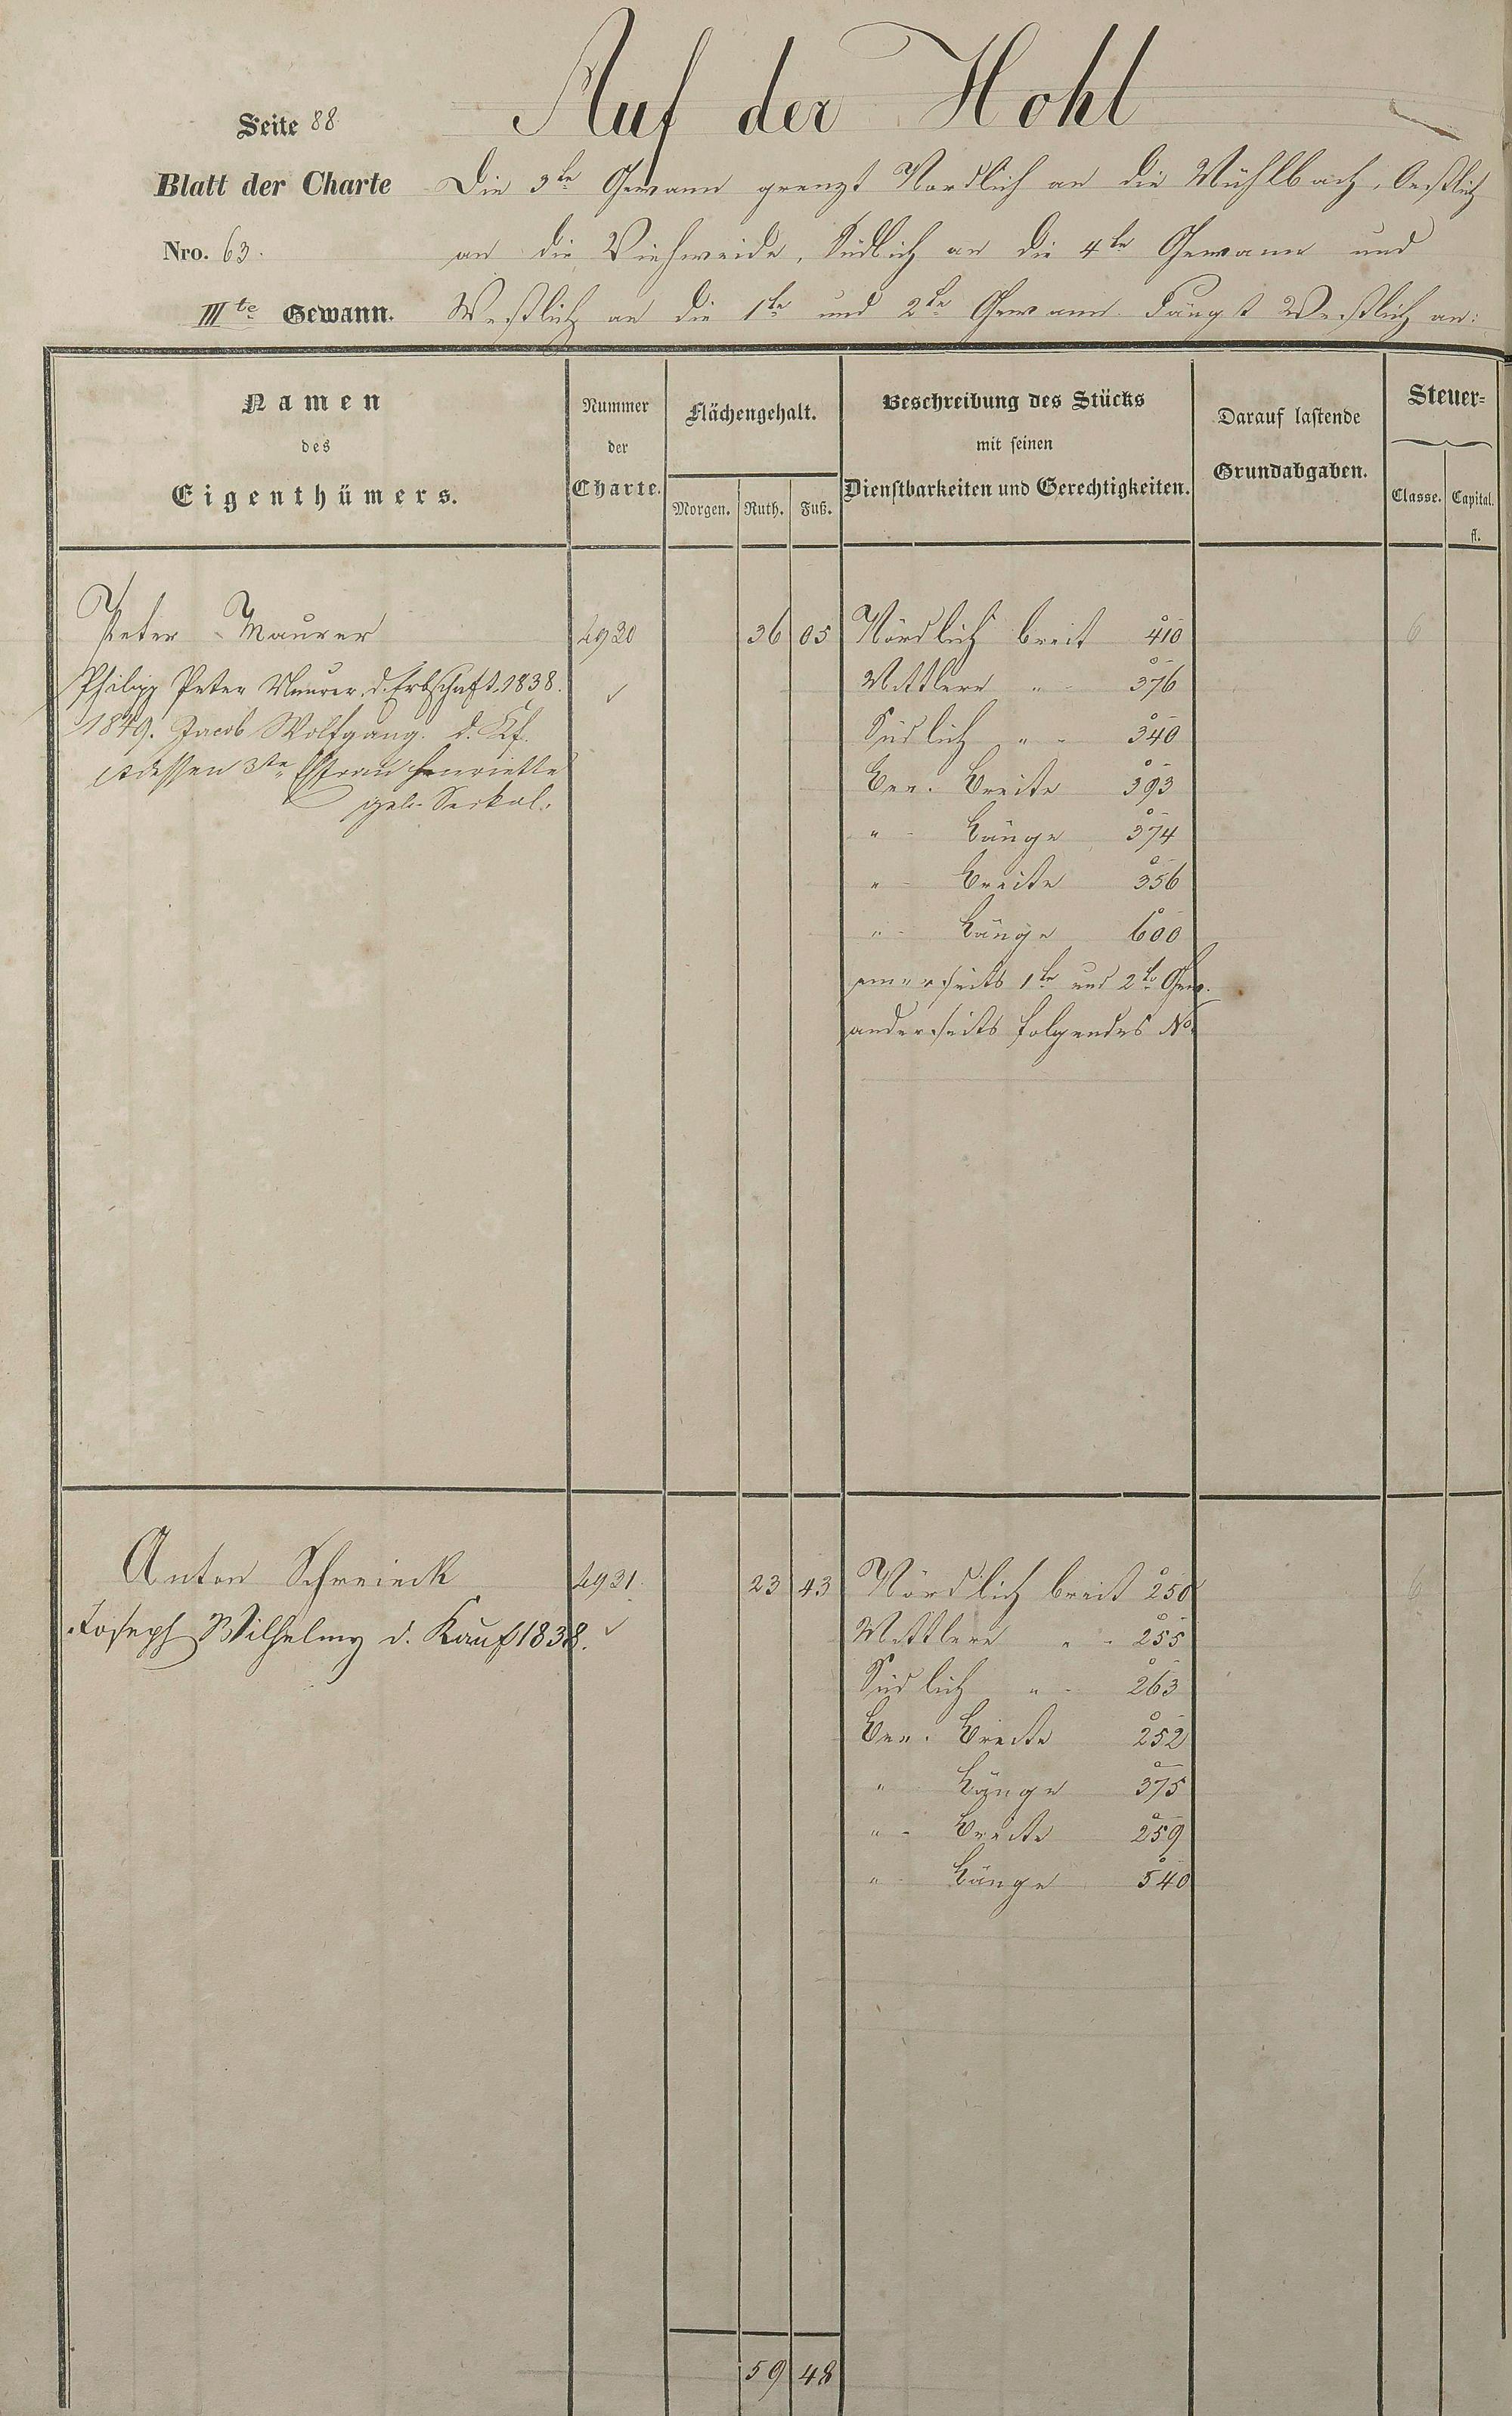 Auf der Hohl
Seite 88
Blatt der Charte
Nro. 63.
IIIte Gewann.
Die 3te Gewann grenzt Nordlich an die Mühlbach, Oestlich
an die Viehweide, Südlich an die 4te Gewann und
Westlich an die 1te und 2te Gewann. Fängt Westlich an:
Namen
des
Eigenthümers.
Nummer
der
Charte.
Flächengehalt.
Morgen. Ruth. Fuß.
Beschreibung des Stücks
mit seinen
Dienstbarkeiten und Gerechtigkeiten.
Darauf lastende
Grundabgaben.
Steuer-
Classe. Capital.
fl.
Peter Maurer 4930 36 05 Nördlich breit 410 6
Philipp Peter Maurer d. Erbschaft. 1838. Mittlere " - 376
1849. Jacob Wolfgang. d. Kf. Südlich " - 340
dessen 3te Ehefrau Henriette Ber. Breite 393
geb. " - Länge 374
" - Breite 356
" - Länge 600
einerseits 1te und 2te Gew.
anderseits folgendes No.
Anton Schreieck 4931. 23 43 Nördlich breit 250 6
Joseph Wilhelmy d. Kauf 1838. Mittlere " - 255
Südlich " - 263
Ber. Breite 252
" Länge 375
" - Breite 259
" Länge 540
59 48